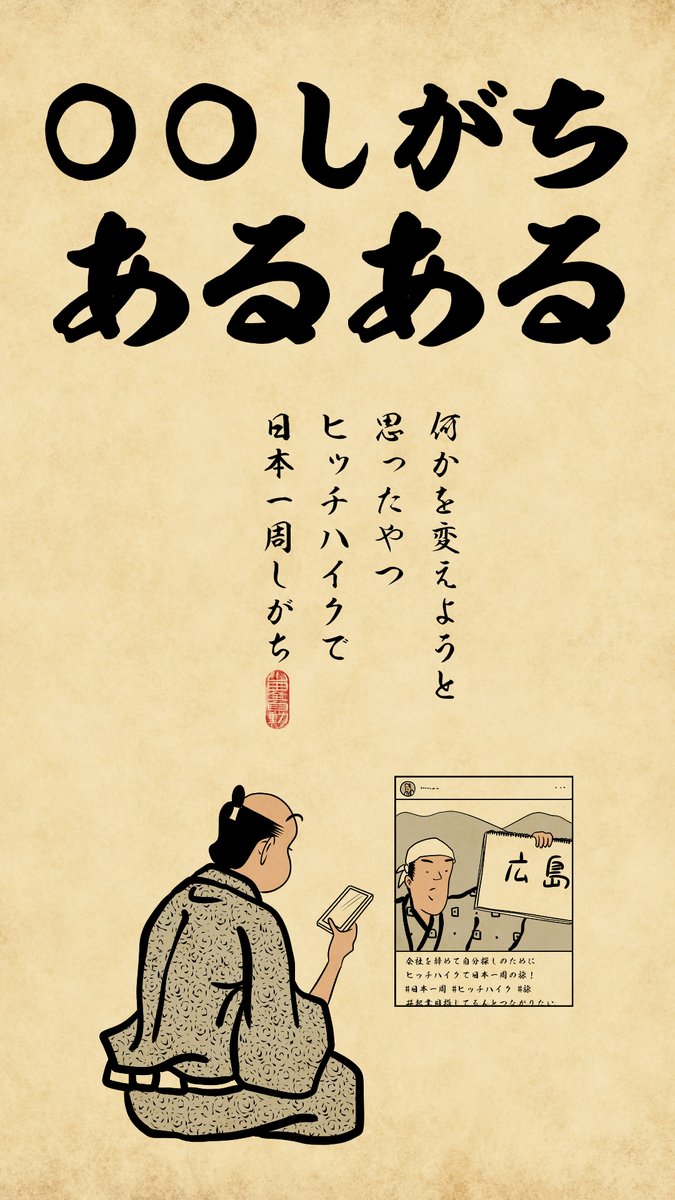 〇〇しがち
あるある
何かを変えようと
思ったやつ
ヒッチハイクで
日本一周しがち
広島
会社を辞めて自分探しのために
ヒッチハイクで日本一周の旅！
#日本一周 #ヒッチハイク #旅
#起業目指してる人とつながりたい